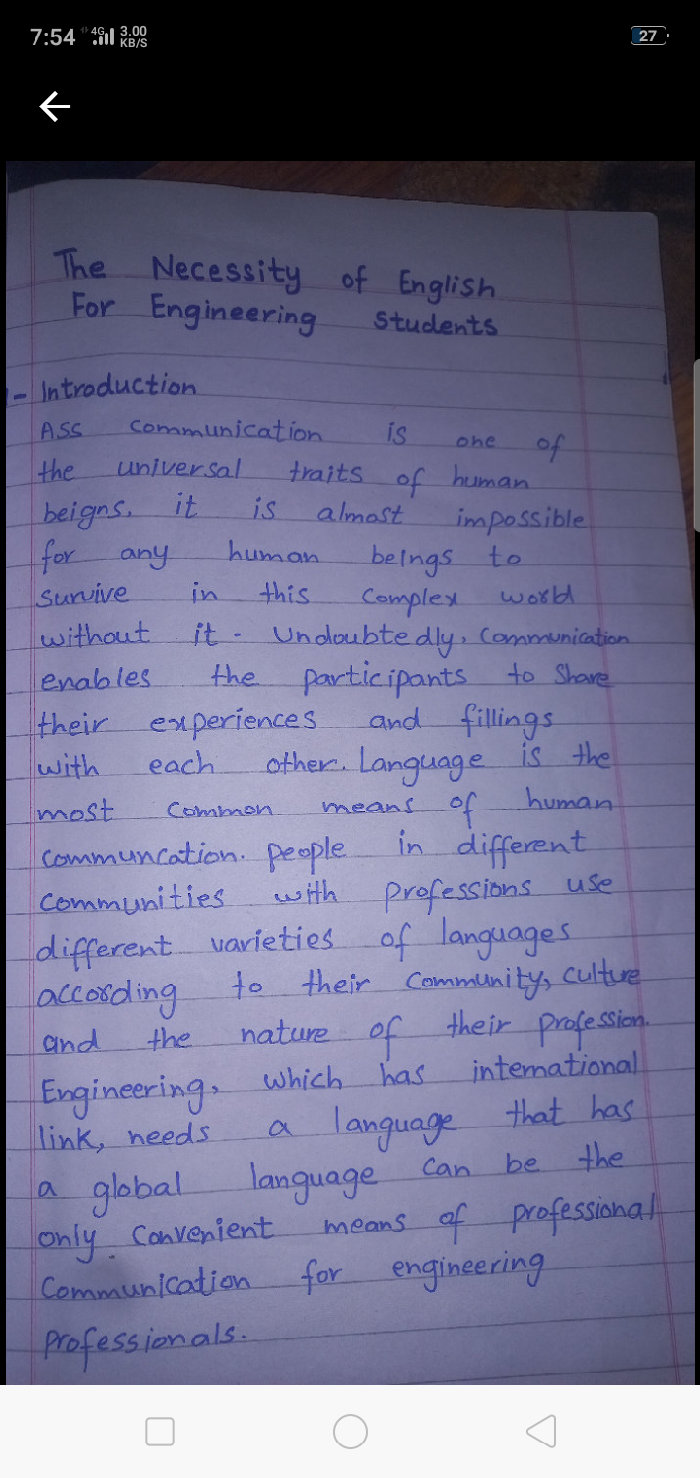 7:54 4G 3.00 KB/S 27
The Necessity of English
For Engineering Students
- Introduction
ASS Communication is one of
the universal traits of human
beigns. it is almost impossible
for any human beings to
Survive in this Complex world
without it - Undoubtedly, Communication
enables the participants to Share
their experiences and fillings
with each other. Language is the
most Common means of human
Communcation. people in different
Communities with professions use
different varieties of languages
according to their Community, Culture
and the nature of their profession.
Engineering, which has international
link, needs a language that has
a global language can be the
only Convenient means of professional
Communication for engineering
Professionals.